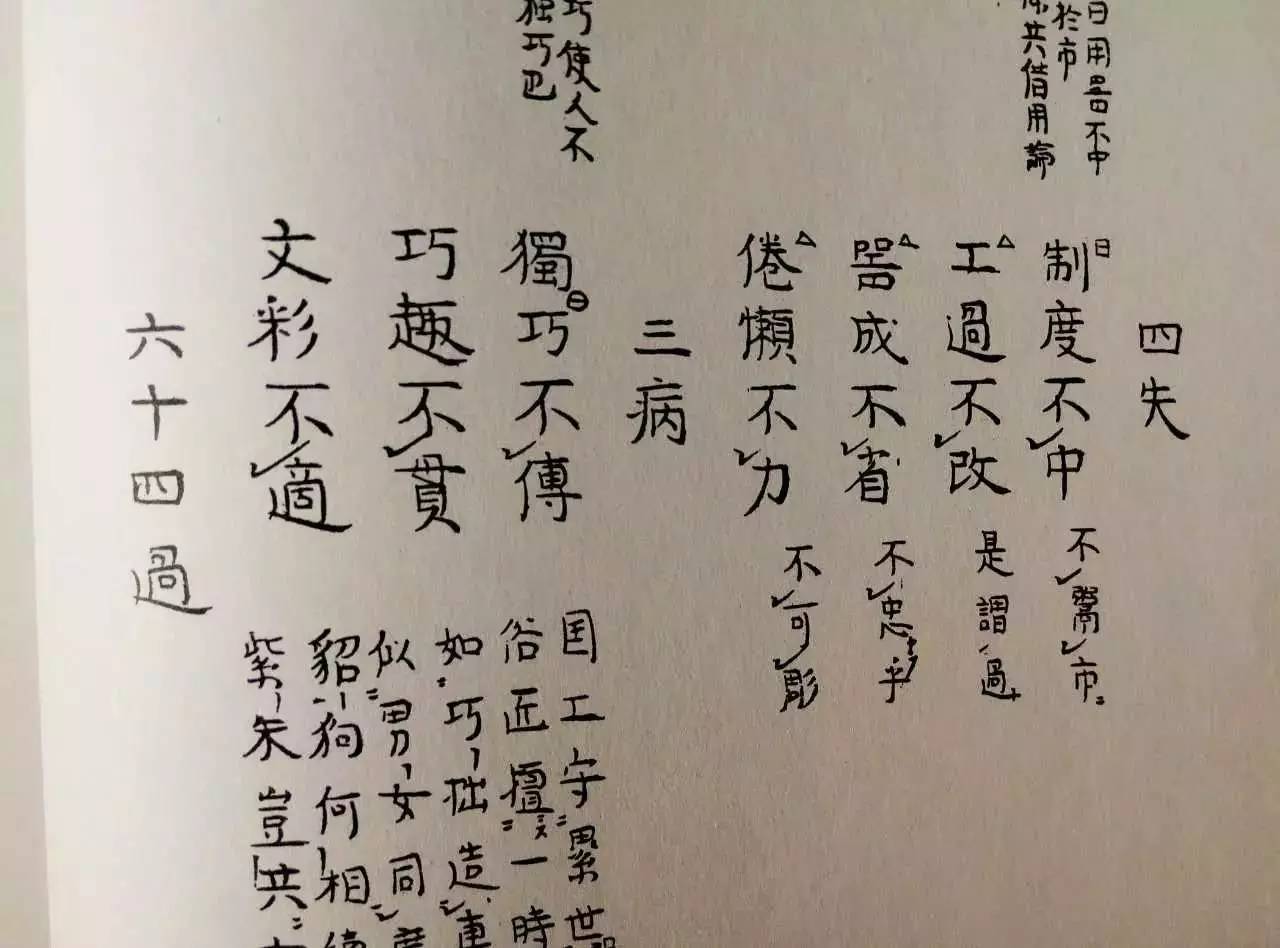 日用器不中
於市
共借用論
四失
制度不中 不鬻市
工過不改 是謂過
器成不省 不忠乎
倦懶不力 不可彫
三病
巧使人不
獨巧不傳 国工守累世
巧巴
俗匠擅一時
巧趣不貫 如巧拙造車
似男女同席
文彩不適 貂狗何相續
紫朱豈共
六十四過